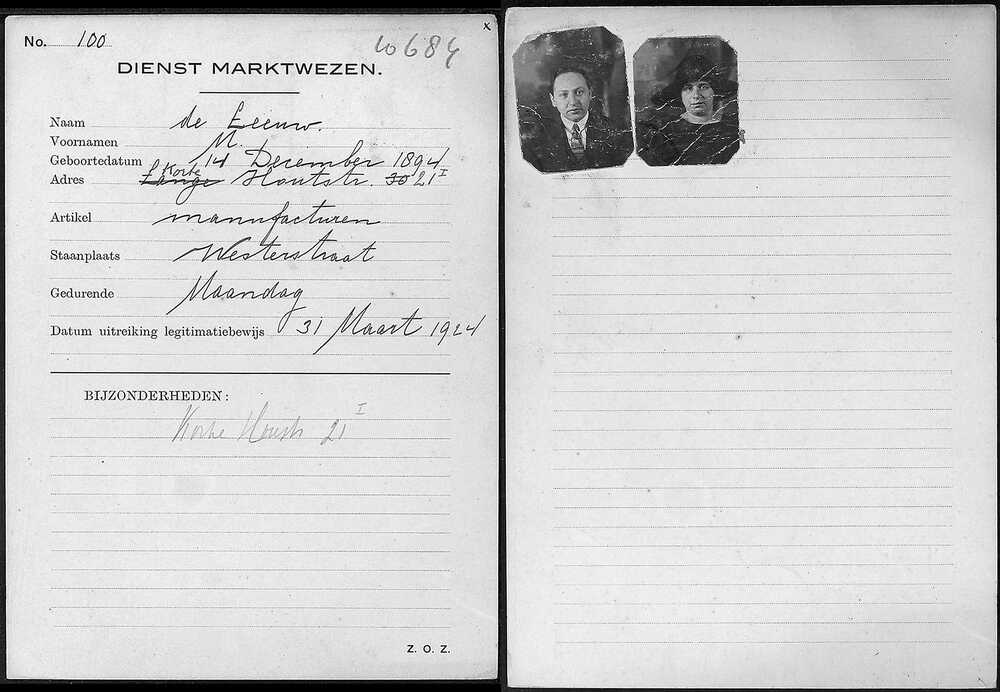 x
No. 100
10684
DIENST MARKTWEZEN.
Naam de Leeuw.
Voornamen M.
Geboortedatum 14 December 1894
Korte
Adres Lange Houtstr. 30 21 I
Artikel manufacturen
Staanplaats Westerstraat
Gedurende Maandag
Datum uitreiking legitimatiebewijs 31 Maart 1924
BIJZONDERHEDEN:
Korte Houtstr 21 I
Z. O. Z.